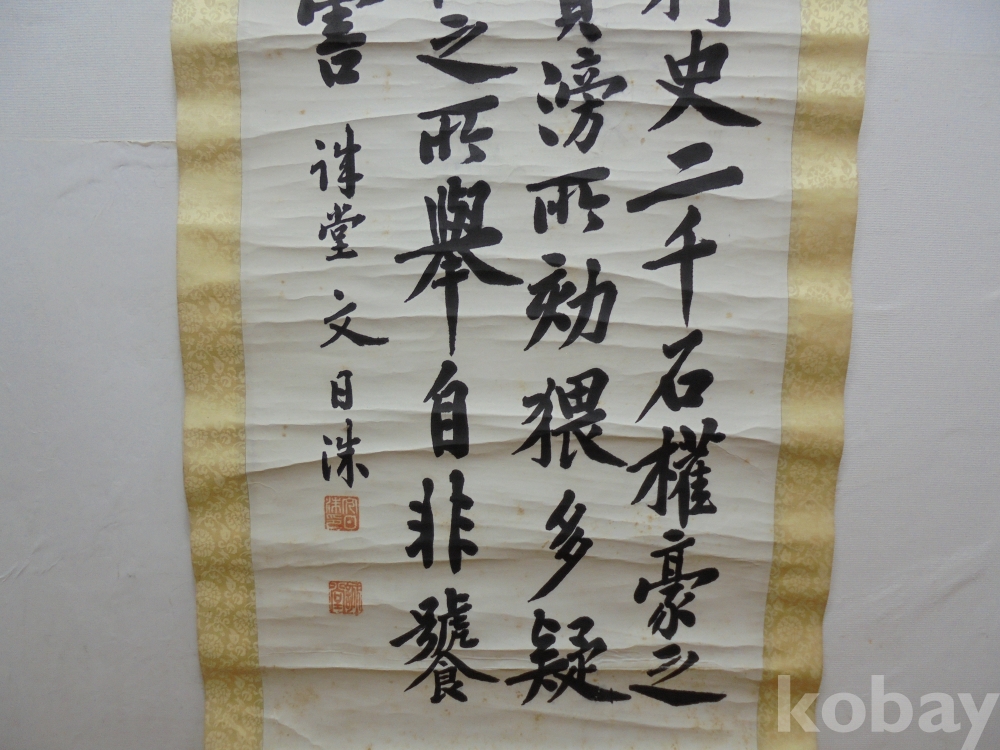 刺史二千石權豪之
責滂所劾猥多疑
之所舉自非饕
害 堂 文日洙
kobay